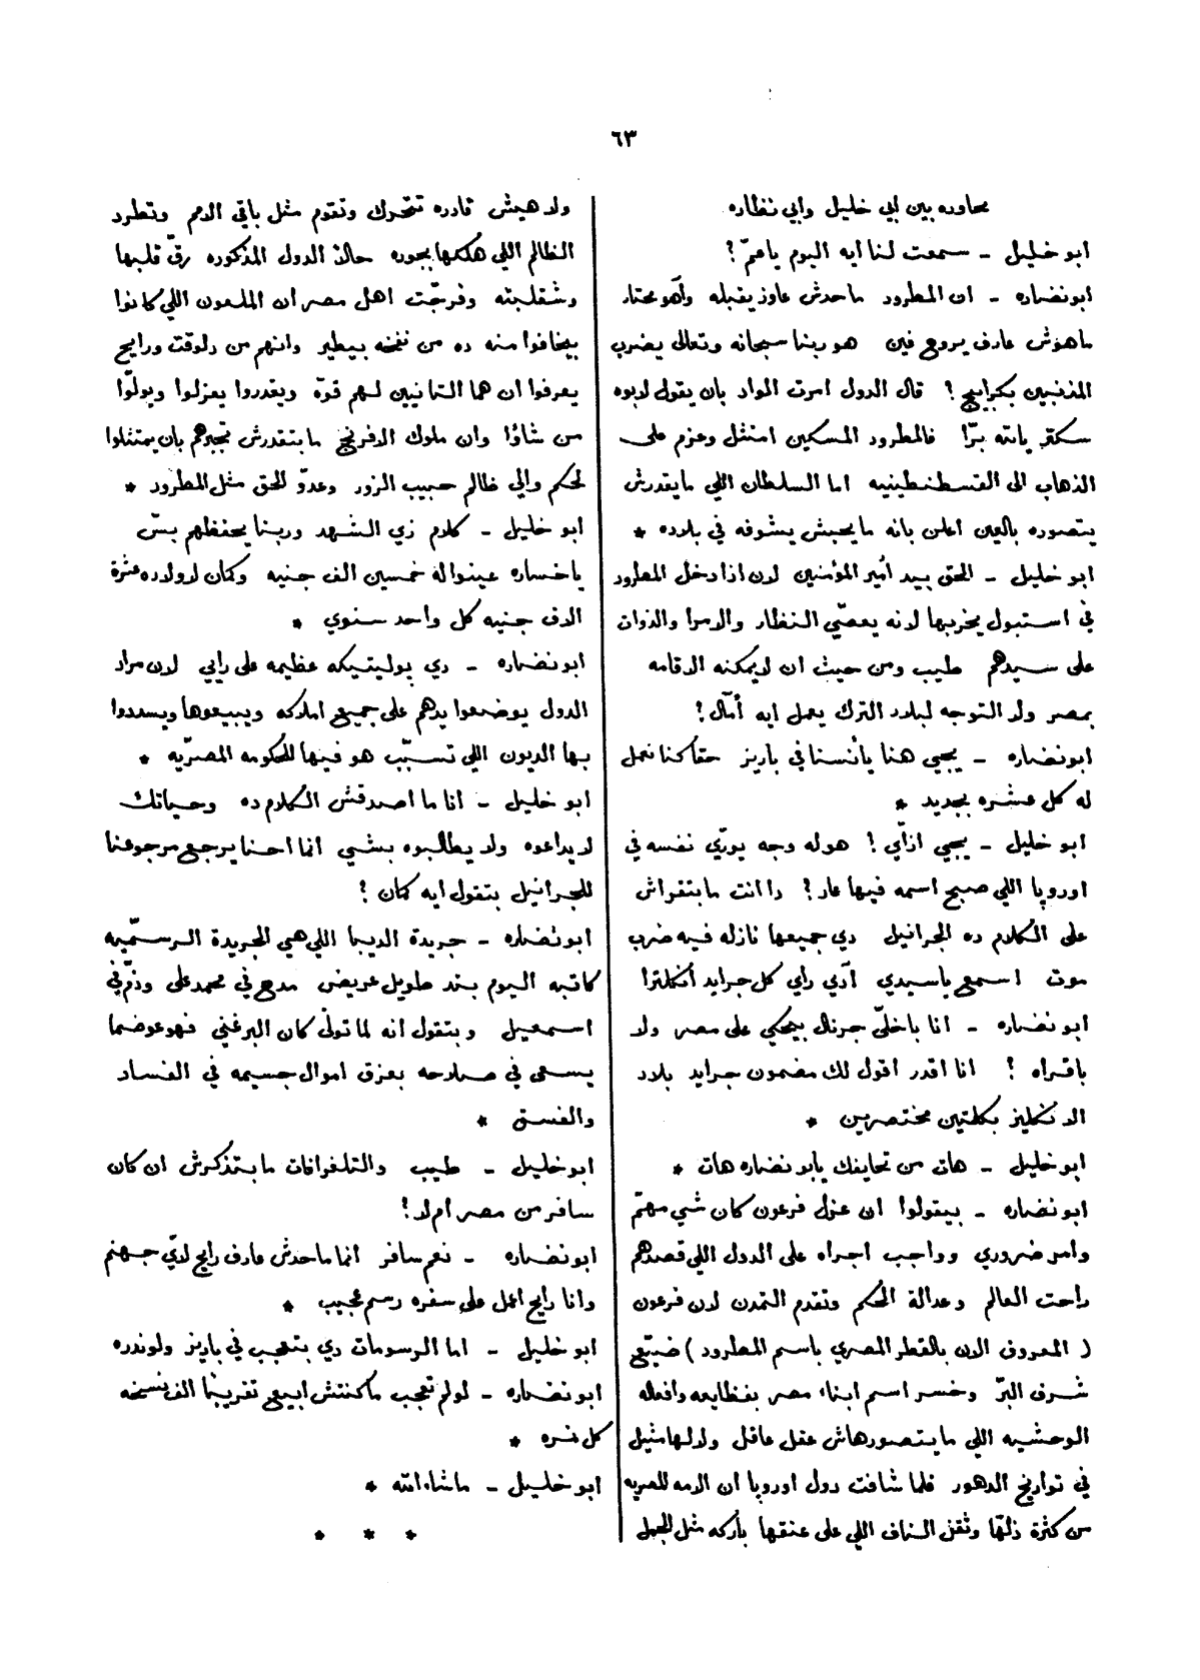 ٦٣
محاوره بين ابي خليل وابي نظاره
ابو خليل - سمعت لنا ايه اليوم ياعمّ ؟
ابونضاره - ان المطرود ماحدش عاوز يقبله وآهو محتار
ماهوش عارف يروح فين هو ربنا سبحانه وتعالى يضرب
المذنبين بكرابيج ؟ قال الدول امرت الواد بان يقول لابوه
سكتر يالله برّا فالمطرود المسكين امتثل وعزم على
الذهاب الى القسطنطينيه اما السلطان اللي مايقدرش
يتصوره بالعين اعلن بانه مايحبش يشوفه في بلاده *
ابو خليل - الحق بيد أمير المؤمنين لان اذا دخل المطرود
في استنبول يخربها لانه يعصّي النظار والامرا والذوات
على سيدهم طيب ومن حيث ان لايمكنه الاقامه
بمصر ولا التوجه لبلاد الترك يعمل ايه أمّال ؟
ابونضاره - يجيي هنا يأنسنا في باريز حقا كنا نعمل
له كل عشره بجديد *
ابو خليل - يجيي ازاّي ! هوله وجه يورّي نفسه في
اوروپا اللي صبح اسمه فيها عار ؟ دا انت مابتقراش
على الكلام ده الجرانيل دي جميعها نازله فيه ضرب
موت اسمع ياسيدي آدي راي كل جرايد أنكلترا
ابونضاره - انا باخلّي جرنال بيحكي على مصر ولا
باقراه ؟ انا اقدر اقول لك مضمون جرايد بلاد
الانكليز بكلمتين مختصرين *
ابو خليل - هات من تحايفك يابو نضاره هات *
ابونضاره - بيقولوا ان عزل فرعون كان شي مهمّ
وامر ضروري وواجب اجراه على الدول اللي قصدهم
راحت العالم وعدالة الحكم وتقدم التمدن لان فرعون
( المعروف الان بالقطر المصري باسم المطرود ) ضيّع
شرف البرّ وخسر اسم ابناء مصر بفظايعه وافعاله
الوحشيه اللي مايتصورهاش عقل عاقل ولالها مثيل
في تواريخ الدهور فلما شافت دول اوروپا ان الامه المصريه
من كثرة ذلّها وثقل الناف اللي على عنقها باركه مثل الجمل
ولاهيش قادره تتحرك وتقوم مثل باقي الامم وتطرد
الظالم اللي هلكها بجوره حالا الدول المذكوره رقّ قلبها
وشقلبته وفرجّت اهل مصر ان الملعون اللي كانوا
بيخافوا منه ده من نفخه بيطير وانهم من دلوقت ورايح
يعرفوا ان هما التانيين لهم قوّة ويقدروا يعزلوا ويولّوا
من شاؤا وان ملوك الافرنج مابتقدرش تجبرهم بان يمتثلوا
لحكم والي ظالم حبيب الزور وعدوّ للحق مثل المطرود *
ابو خليل - كلام زي الشهد وربنا يحفظهم بسّ
ياخساره عينواله خمسين الف جنيه وكمان لاولاده عشرة
الاف جنيه كل واحد سنوي *
ابونضاره - دي پوليتيكه عظيمه على رايي لان مراد
الدول يوضعوا يدهم على جميع املاكه ويبيعوها ويسددوا
بها الديون اللي تسبّب هو فيها للحكومه المصرّيه *
ابو خليل - انا ما اصدقش الكلام ده وحياتك
لايراعوه ولا يطالبوه بشي انما احنا يرجع مرجوعنا
للجرانيل بتقول ايه كمان ؟
ابونضاره - جريدة الديبا اللي هي الجريدة الرسمّيه
كاتبه اليوم بند طويل عريض مدح في محمد على وذمّ في
اسمعيل وبتقول انه لما تولّى كان البر غني فهو عوضما
يسعى في صلاحه بعزق اموال جسيمه في الفساد
والفسق *
ابو خليل - طيب والتلغرافات مابتذكرش ان كان
سافر من مصر ام لا ؟
ابونضاره - نعم سافر انما ماحدش عارف رايح لاديّ جهنم
وانا رايح اعمل على سفره رسم عجيب *
ابو خليل - اما الرسومات دي بتعجب في باريز ولوندره
ابونضاره - لولم تعجب ماكنتش ابيع تقريبًا الف نسخه
كل نمره *
ابو خليل - ماشاء الله *
* * *